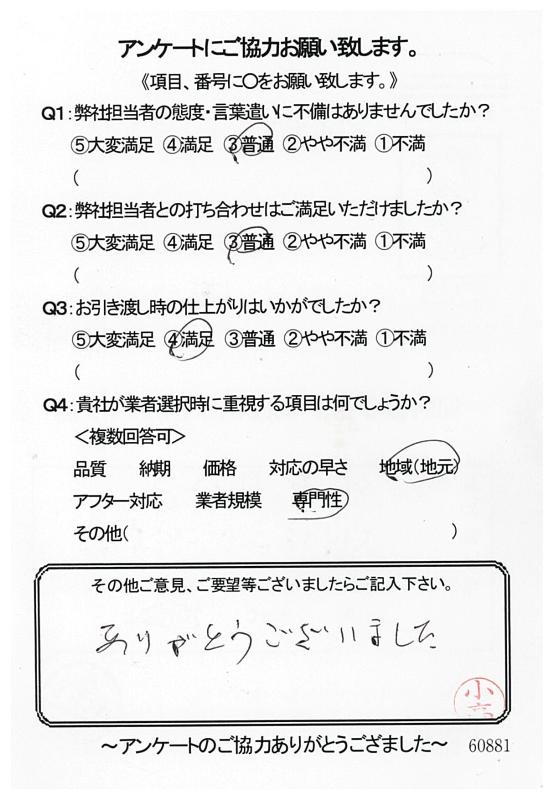 アンケートにご協力お願い致します。
《項目、番号に〇をお願い致します。》
Q1:弊社担当者の態度・言葉遣いに不備はありませんでしたか?
⑤大変満足 ④満足 ③普通 ②やや不満 ①不満
( )
Q2:弊社担当者との打ち合わせはご満足いただけましたか?
⑤大変満足 ④満足 ③普通 ②やや不満 ①不満
( )
Q3:お引き渡し時の仕上がりはいかがでしたか?
⑤大変満足 ④満足 ③普通 ②やや不満 ①不満
( )
Q4:貴社が業者選択時に重視する項目は何でしょうか?
<複数回答可>
品質 納期 価格 対応の早さ 地域(地元)
アフター対応 業者規模 専門性
その他( )
その他ご意見、ご要望等ございましたらご記入下さい。
ありがとうございました
小
~アンケートのご協力ありがとうござました~ 60881